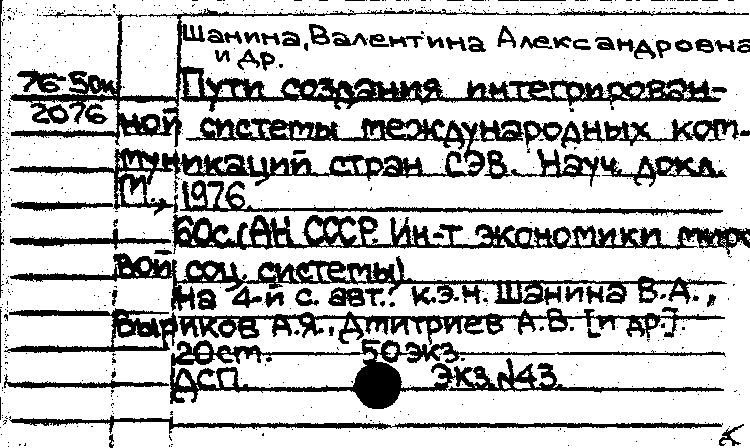 Шанина, Валентина Александровна
и др.
76-50к
2076
Пути создания интегрирован-
ной системы международных ком-
муникаций стран СЭВ. Науч. докл.
М., 1976.
60с. (АН СССР. Ин-т экономики миро
вой соц. системы).
На 4-й с. авт.: к.э.н. Шанина В.А.,
Выриков А.Я., Дмитриев А.В. [и др.].
20см. 50экз.
ДСП. Экз.№43.